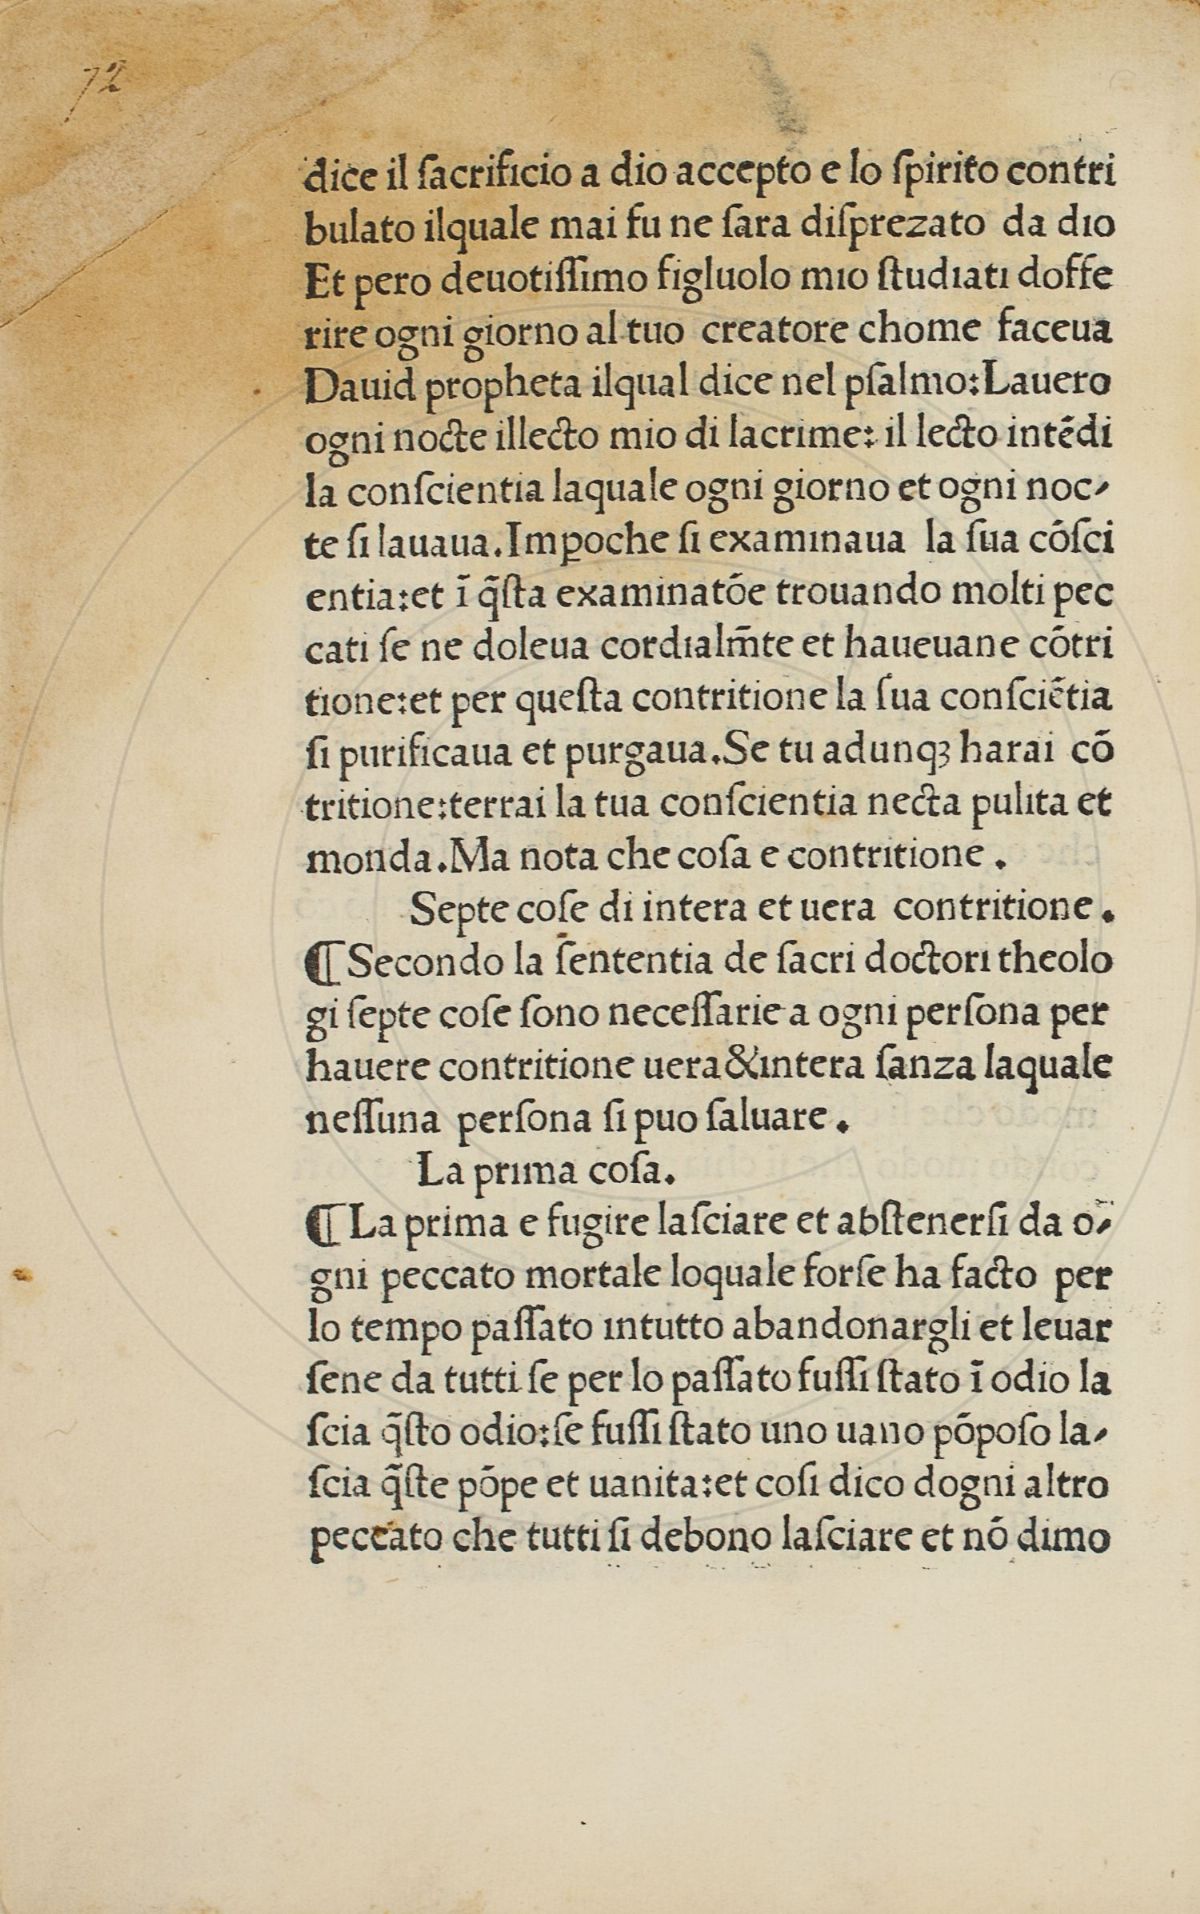 72
dice il ſacrificio a dio accepto e lo ſpirito contri
bulato ilquale mai fu ne ſara diſprezato da dio
Et pero deuotiſſimo figluolo mio ſtudiati doffe
rire ogni giorno al tuo creatore chome faceua
Dauid propheta ilqual dice nel pſalmo:Lauero
ogni nocte illecto mio di lacrime: il lecto intēdi
la conſcientia laquale ogni giorno et ogni noc⸗
te ſi lauaua.Imꝑoche ſi examinaua la ſua cōſci
entia:et ī q̄ſta examinatōe trouando molti pec
cati ſe ne doleua cordialm̄te et haueuane cōtri
tione:et per queſta contritione la ſua conſciētia
ſi purificaua et purgaua.Se tu adunqꝫ harai cō
tritione:terrai la tua conſcientia necta pulita et
monda.Ma nota che coſa e contritione.
Septe coſe di intera et uera contritione.
¶ Secondo la ſententia de ſacri doctori theolo
gi ſepte coſe ſono neceſſarie a ogni perſona per
hauere contritione uera&intera ſanza laquale
neſſuna perſona ſi puo ſaluare.
La prima coſa.
¶ La prima e fugire laſciare et abſtenerſi da o⸗
gni peccato mortale loquale forſe ha facto per
lo tempo paſſato intutto abandonargli et leuar
ſene da tutti ſe per lo paſſato fuſſi ſtato ī odio la
ſcia q̄ſto odio:ſe fuſſi ſtato uno uano pōpoſo la⸗
ſcia q̄ſte pōpe et uanita:et coſi dico dogni altro
peccato che tutti ſi debono laſciare et nō dimo